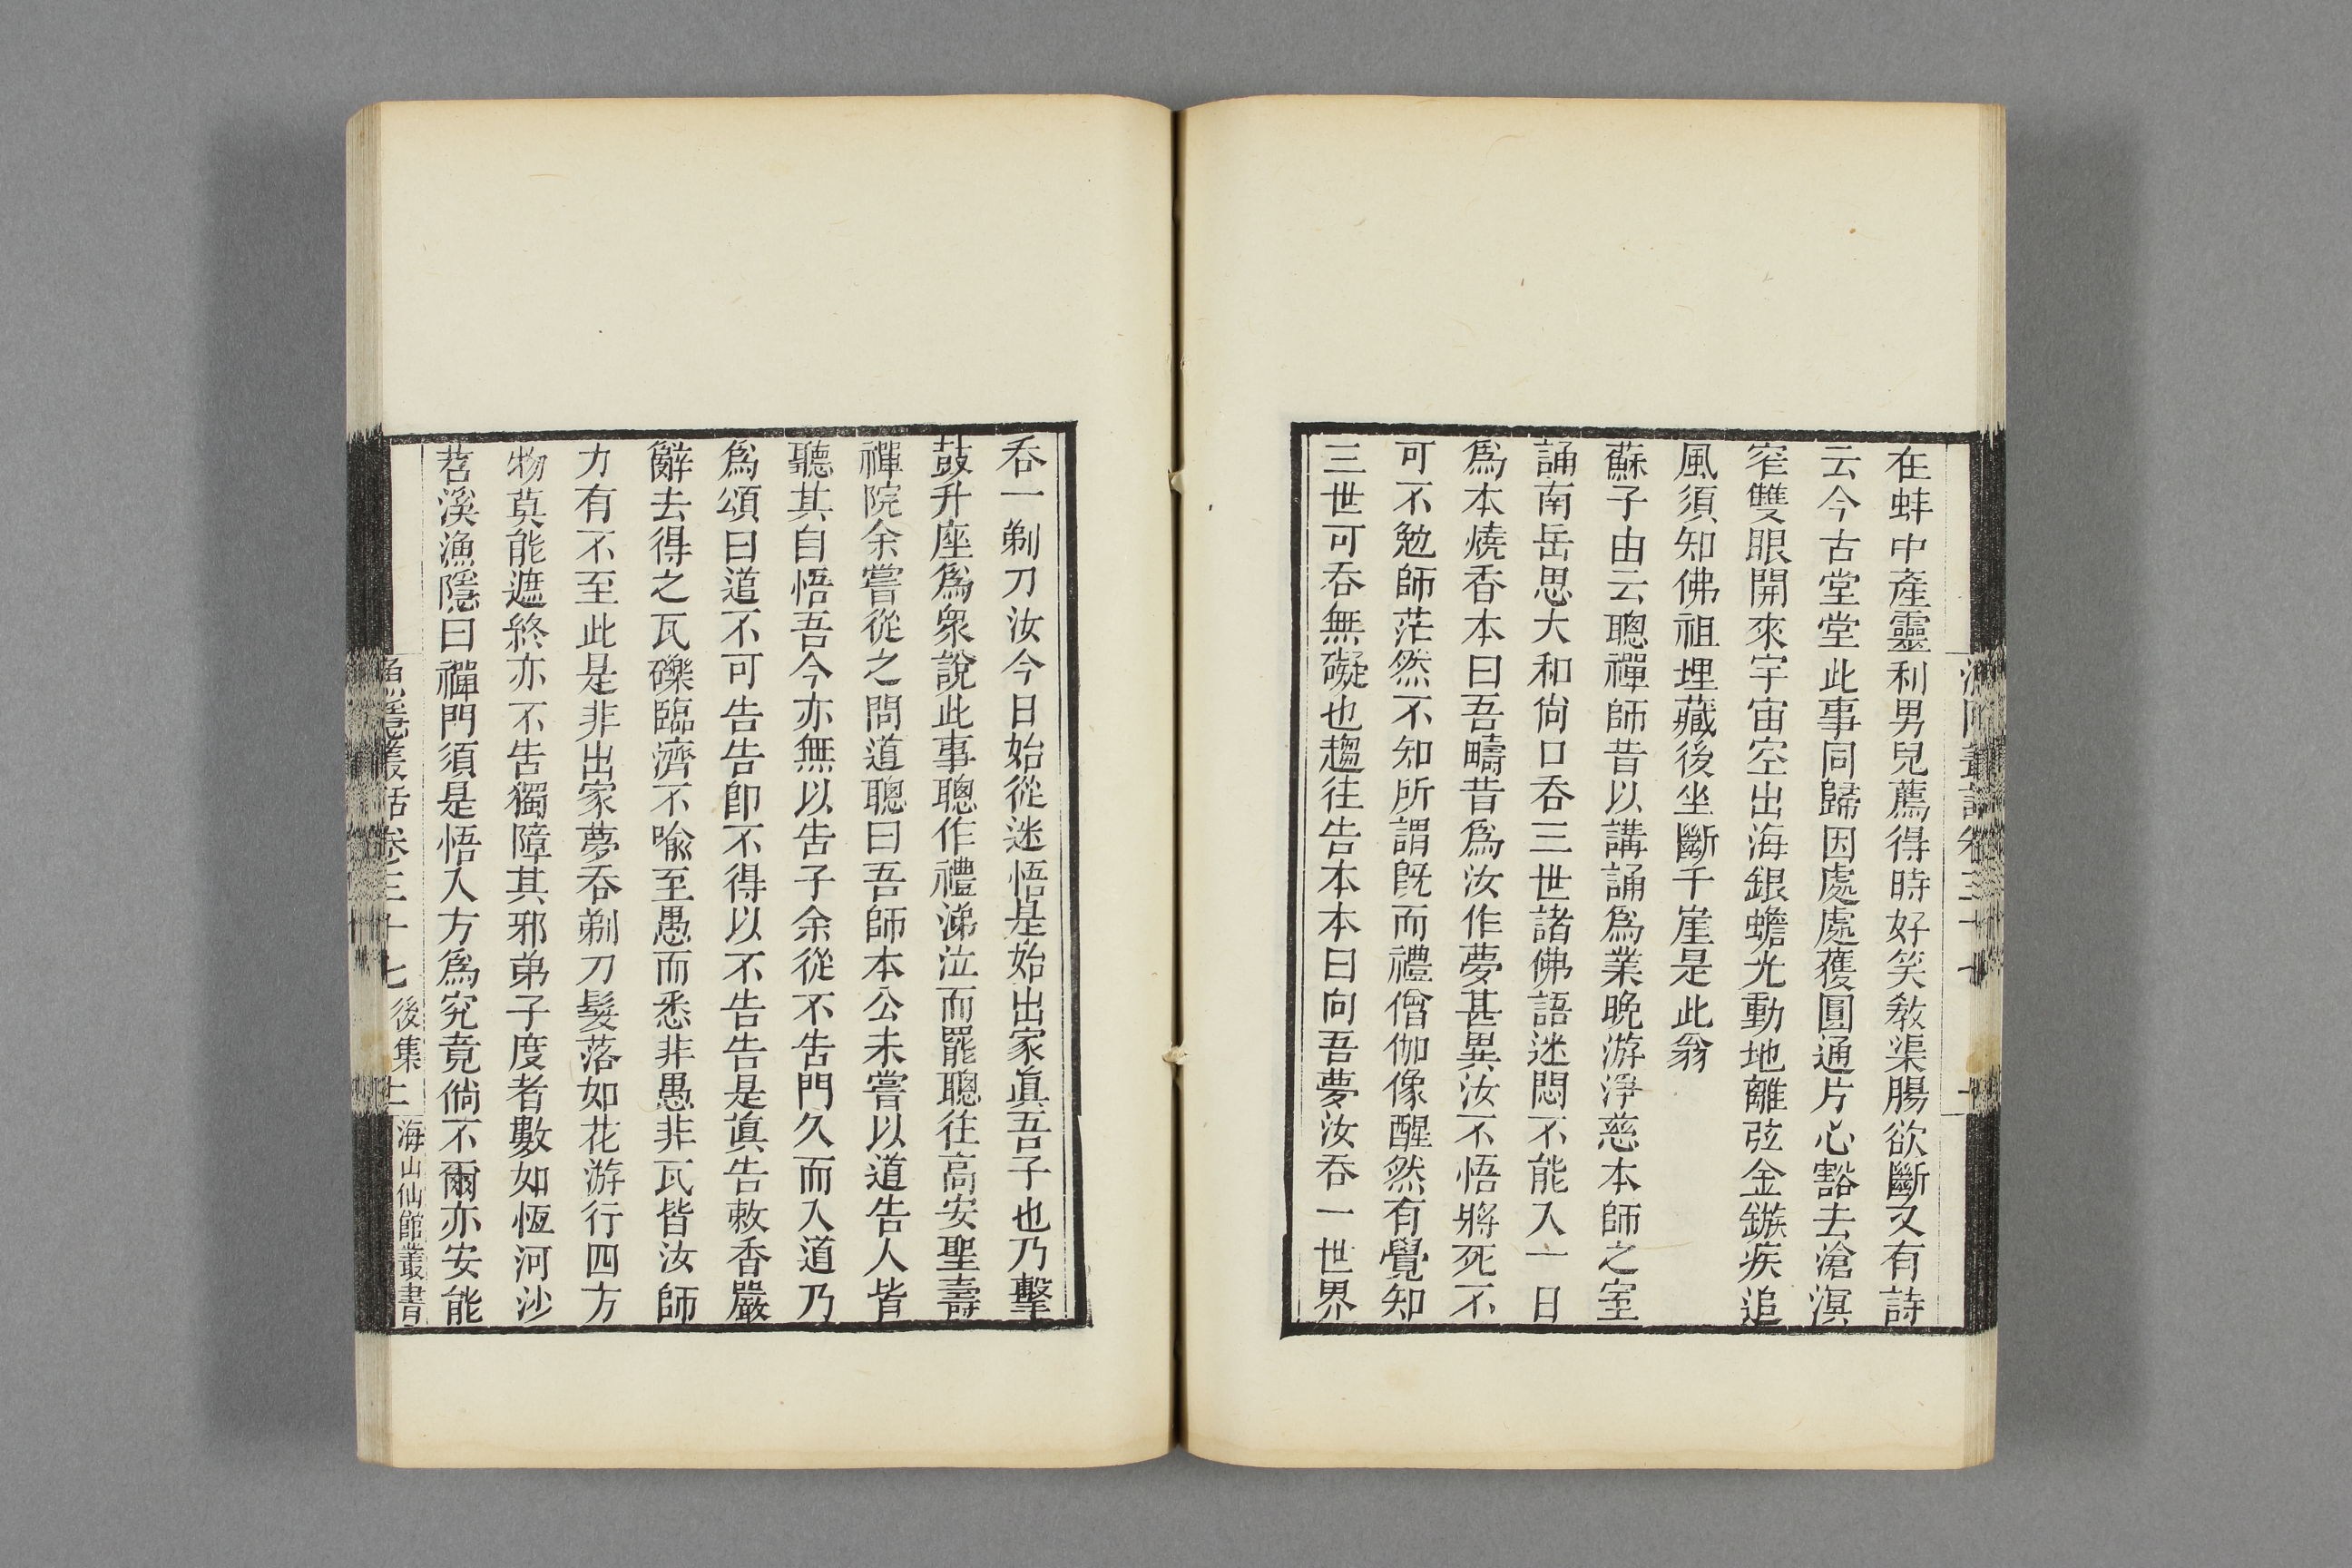 在蚌中產靈利男兒薦得時好笑敎渠腸欲斷又有詩
云今古堂堂此事同歸因處處獲圓通片心豁去滄溟
窄雙眼開來宇宙空出海銀蟾光動地離弦金鏃疾追
風須知佛祖埋藏後坐斷千崖是此翁
蘇子由云聰禪師昔以講誦爲業晚游淨慈本師之室
誦南岳思大和尙口吞三世諸佛語迷悶不能入一日
爲本燒香本曰吾疇昔爲汝作夢甚異汝不悟將死不
可不勉師茫然不知所謂旣而禮僧伽像醒然有覺知
三世可吞無礙也趨往告本本曰向吾夢汝吞一世界
吞一剃刀汝今日始從迷悟是始出家眞吾子也乃擊
鼓升座爲衆說此事聰作禮涕泣而罷聰往高安聖壽
禪院余嘗從之問道聰曰吾師本公未嘗以道告人皆
聽其自悟吾今亦無以告子余從不告門久而入道乃
爲頌曰道不可告告卽不得以不告告是眞告敕香嚴
辭去得之瓦礫臨濟不喻至愚而悉非愚非瓦皆汝師
力有不至此是非出家夢吞剃刀髮落如花游行四方
物莫能遮終亦不告獨障其邪弟子度者數如恆河沙
苕溪漁隱曰禪門須是悟入方爲究竟倘不爾亦安能
漁隱叢話卷三十七 後集 海山仙館叢書